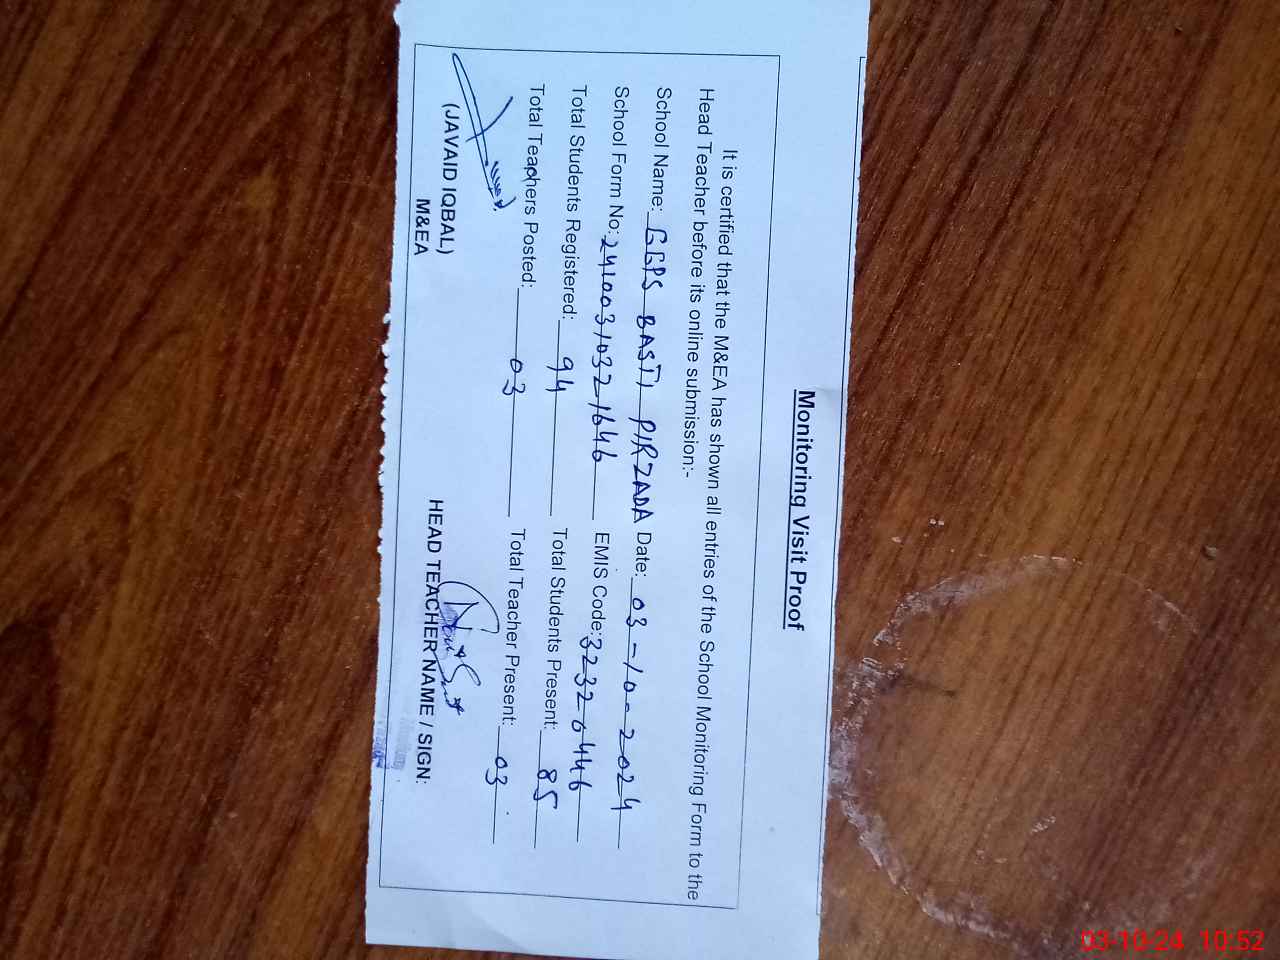 Monitoring Visit Proof
It is certified that the M&EA has shown all entries of the School Monitoring Form to the
Head Teacher before its online submission:-
School Name: GGPS BASTI PIRZADA Date: 03-10-2024
School Form No: 24100310321646 EMIS Code: 32320446
Total Students Registered: 94 Total Students Present: 85
Total Teachers Posted: 03 Total Teacher Present: 03
(JAVAID IQBAL)
M&EA
HEAD TEACHER NAME / SIGN:
03-10-24 10:52